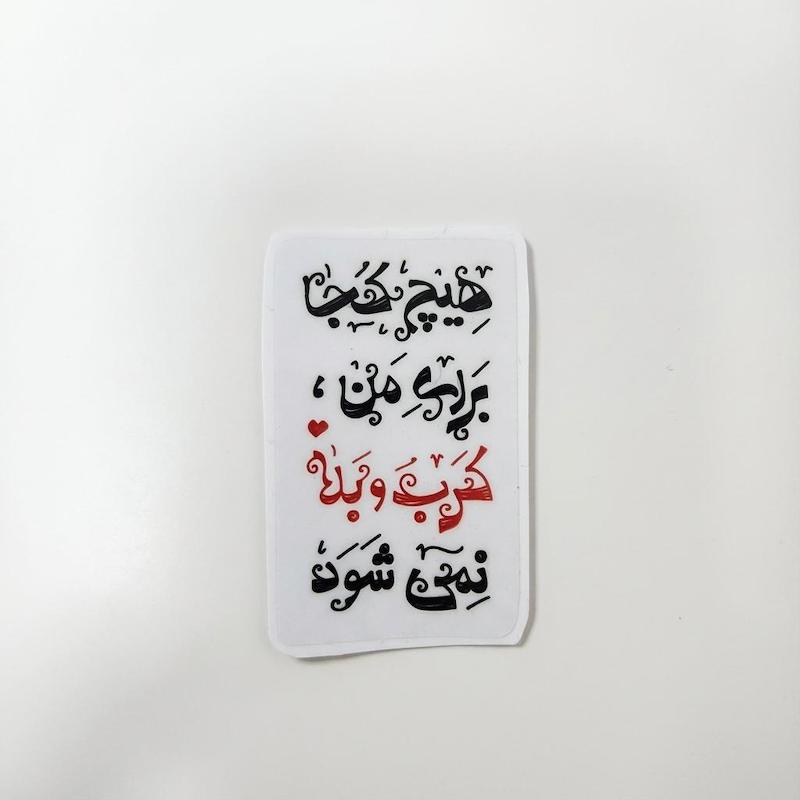 هیچ کجا
برای من ،
کرب و بلا
نمی شود